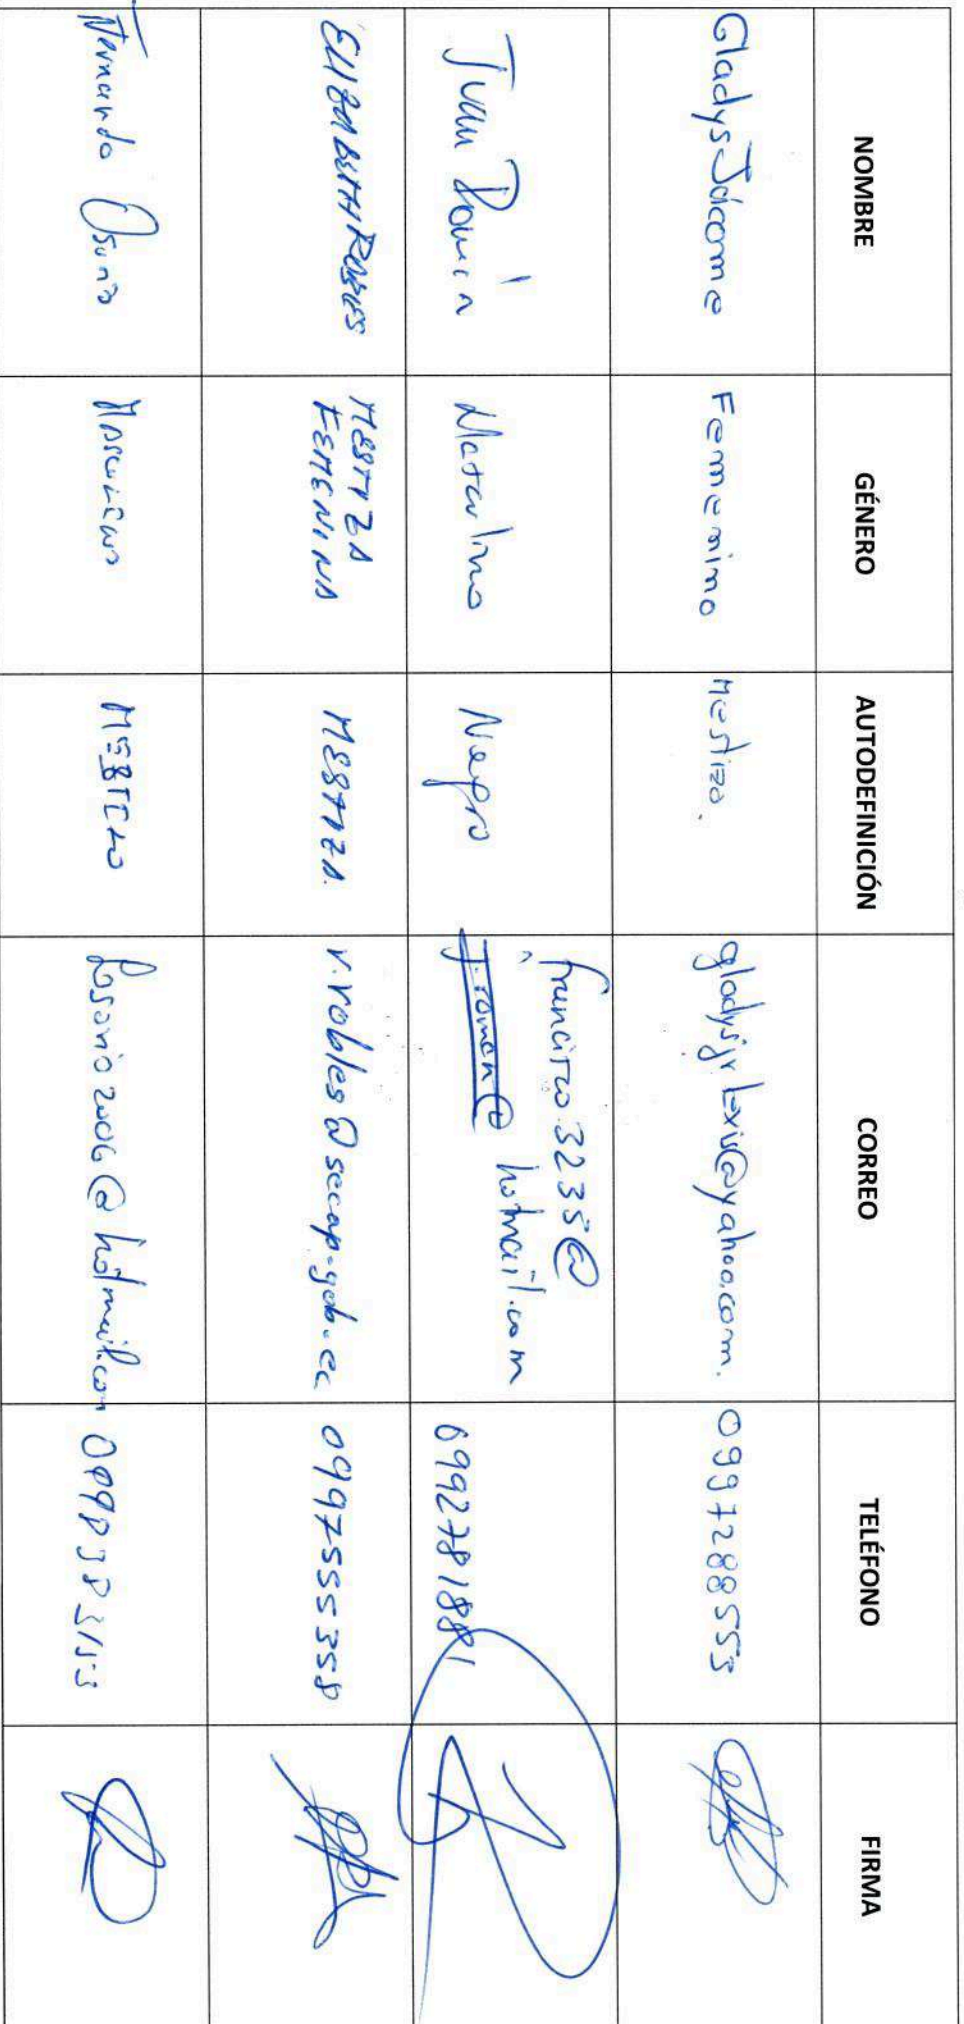 NOMBRE GÉNERO AUTODEFINICIÓN CORREO TELÉFONO FIRMA
Gladys Jácome Femenino Mestizo. gladysjrlexis@yahoo.com. 0997288553
Juan Román Masculino Negro francisco.3235@ 0992781881
j.roman@ hotmail.com
ELIZABETH ROBLES MESTIZA FEMENINA MESTIZA. v.robles@secap.gob.ec 0997555358
Fernando Osorio Masculino MESTIZO hotmail.com